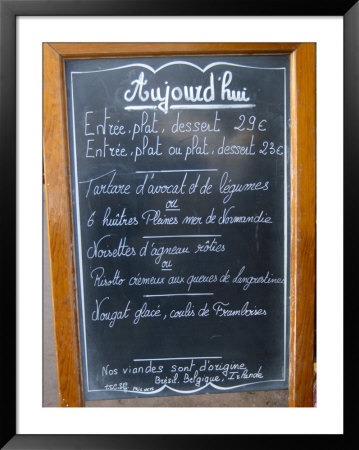 Aujourd'hui
Entrée, plat, dessert 29€
Entrée, plat ou plat, dessert 23€
Tartare d'avocat et de légumes
ou
6 huîtres Pleines mer de Normandie
Noisettes d'agneau rôties
ou
Risotto crémeux aux queues de langoustines
Nougat glacé, coulis de Framboises
Nos viandes sont d'origine
Brésil, Belgique, Islande